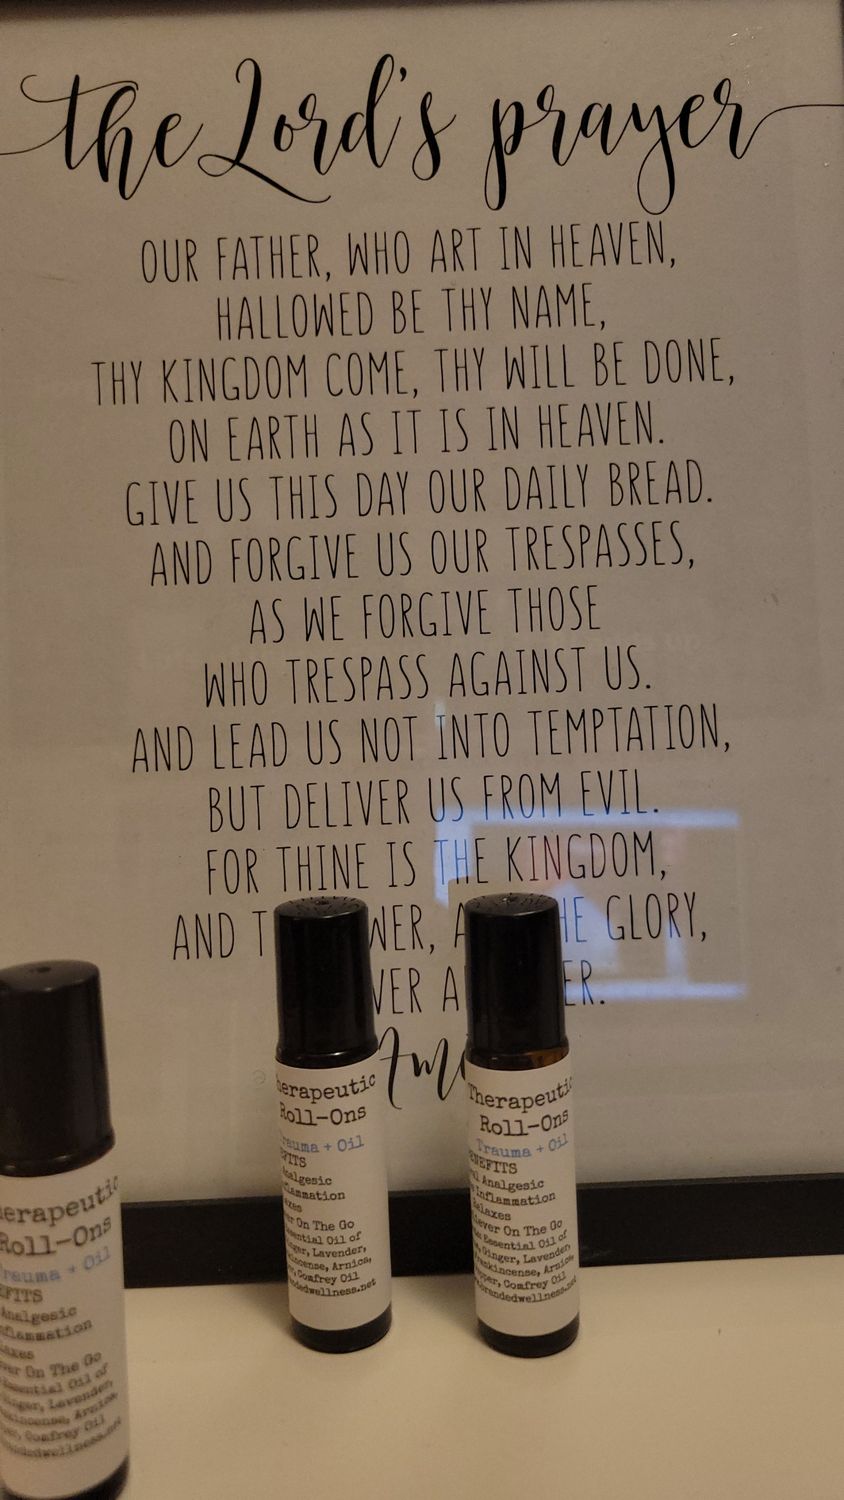 the Lord's prayer
OUR FATHER, WHO ART IN HEAVEN,
HALLOWED BE THY NAME,
THY KINGDOM COME, THY WILL BE DONE,
ON EARTH AS IT IS IN HEAVEN.
GIVE US THIS DAY OUR DAILY BREAD.
AND FORGIVE US OUR TRESPASSES,
AS WE FORGIVE THOSE
WHO TRESPASS AGAINST US.
AND LEAD US NOT INTO TEMPTATION,
BUT DELIVER US FROM EVIL.
FOR THINE IS THE KINGDOM,
AND T WER, A HE GLORY,
VER A ER.
Ame
erapeutic
Roll-Ons
rauma + Oil
FITS
Analgesic
flammation
laxes
ver On The Go
ssential Oil of
inger, Lavender,
kincense, Arnica,
er, Comfrey Oil
ndedwellness.net
herapeutic
Roll-Ons
rauma + Oil
FITS
Analgesic
flammation
laxes
er On The Go
ssential Oil of
nger, Lavender,
incense, Arnica,
r, Comfrey Oil
randedwellness.net
Therapeutic
Roll-Ons
Trauma + Oil
ENEFITS
Analgesic
Inflammation
Relaxes
ever On The Go
Essential Oil of
Ginger, Lavender,
rankincense, Arnica,
epper, Comfrey Oil
brandedwellness.net